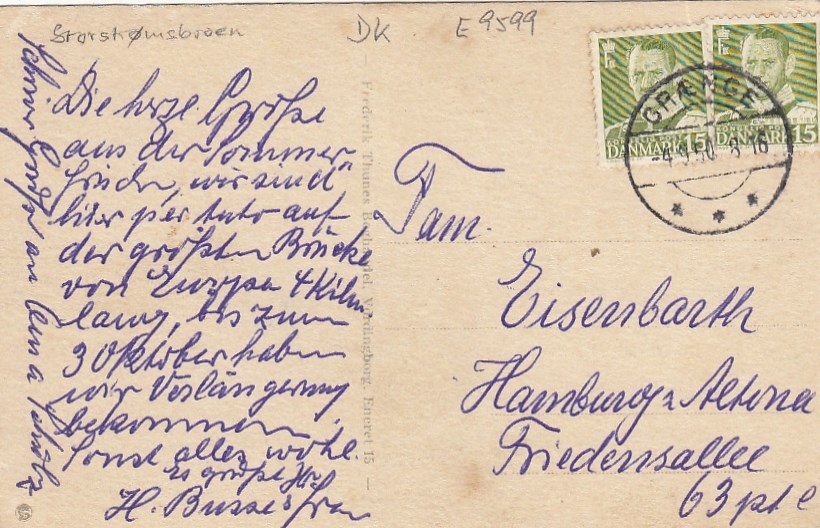 Storstrømsbroen
DK
E 9599
Die herzl. Grüße
aus der Sommer
wir sind
hier per Auto auf
der größten Brücke
von Europa 4 Kilm
lang, bis zum
3 Oktober haben
wir Verlängerung
bekommen
Sonst alles wohl.
Es grüßt
H. Busse & Frau
an
Frederik Thunes Boghandel, Vordingborg. Eneret 15
DANMARK 15
DANMARK 15
GRÆNGE
-4.9.50. 8-16
Fam.
Eisenbarth
Hamburg-Altona
Friedensallee
63 pt e